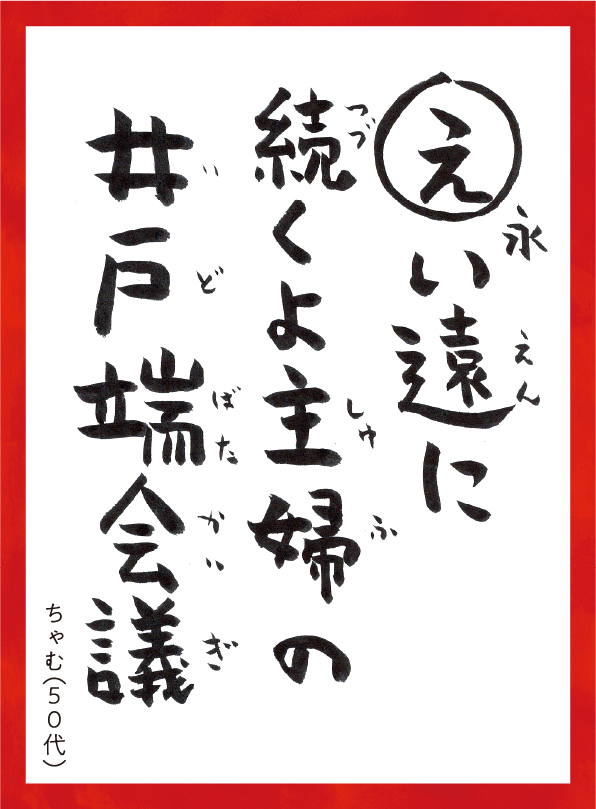 えい遠に
永
えん
続くよ主婦の
つづ
しゅ
ふ
井戸端会議
い
ど
ばた
かい
ぎ
ちゃむ(50代)